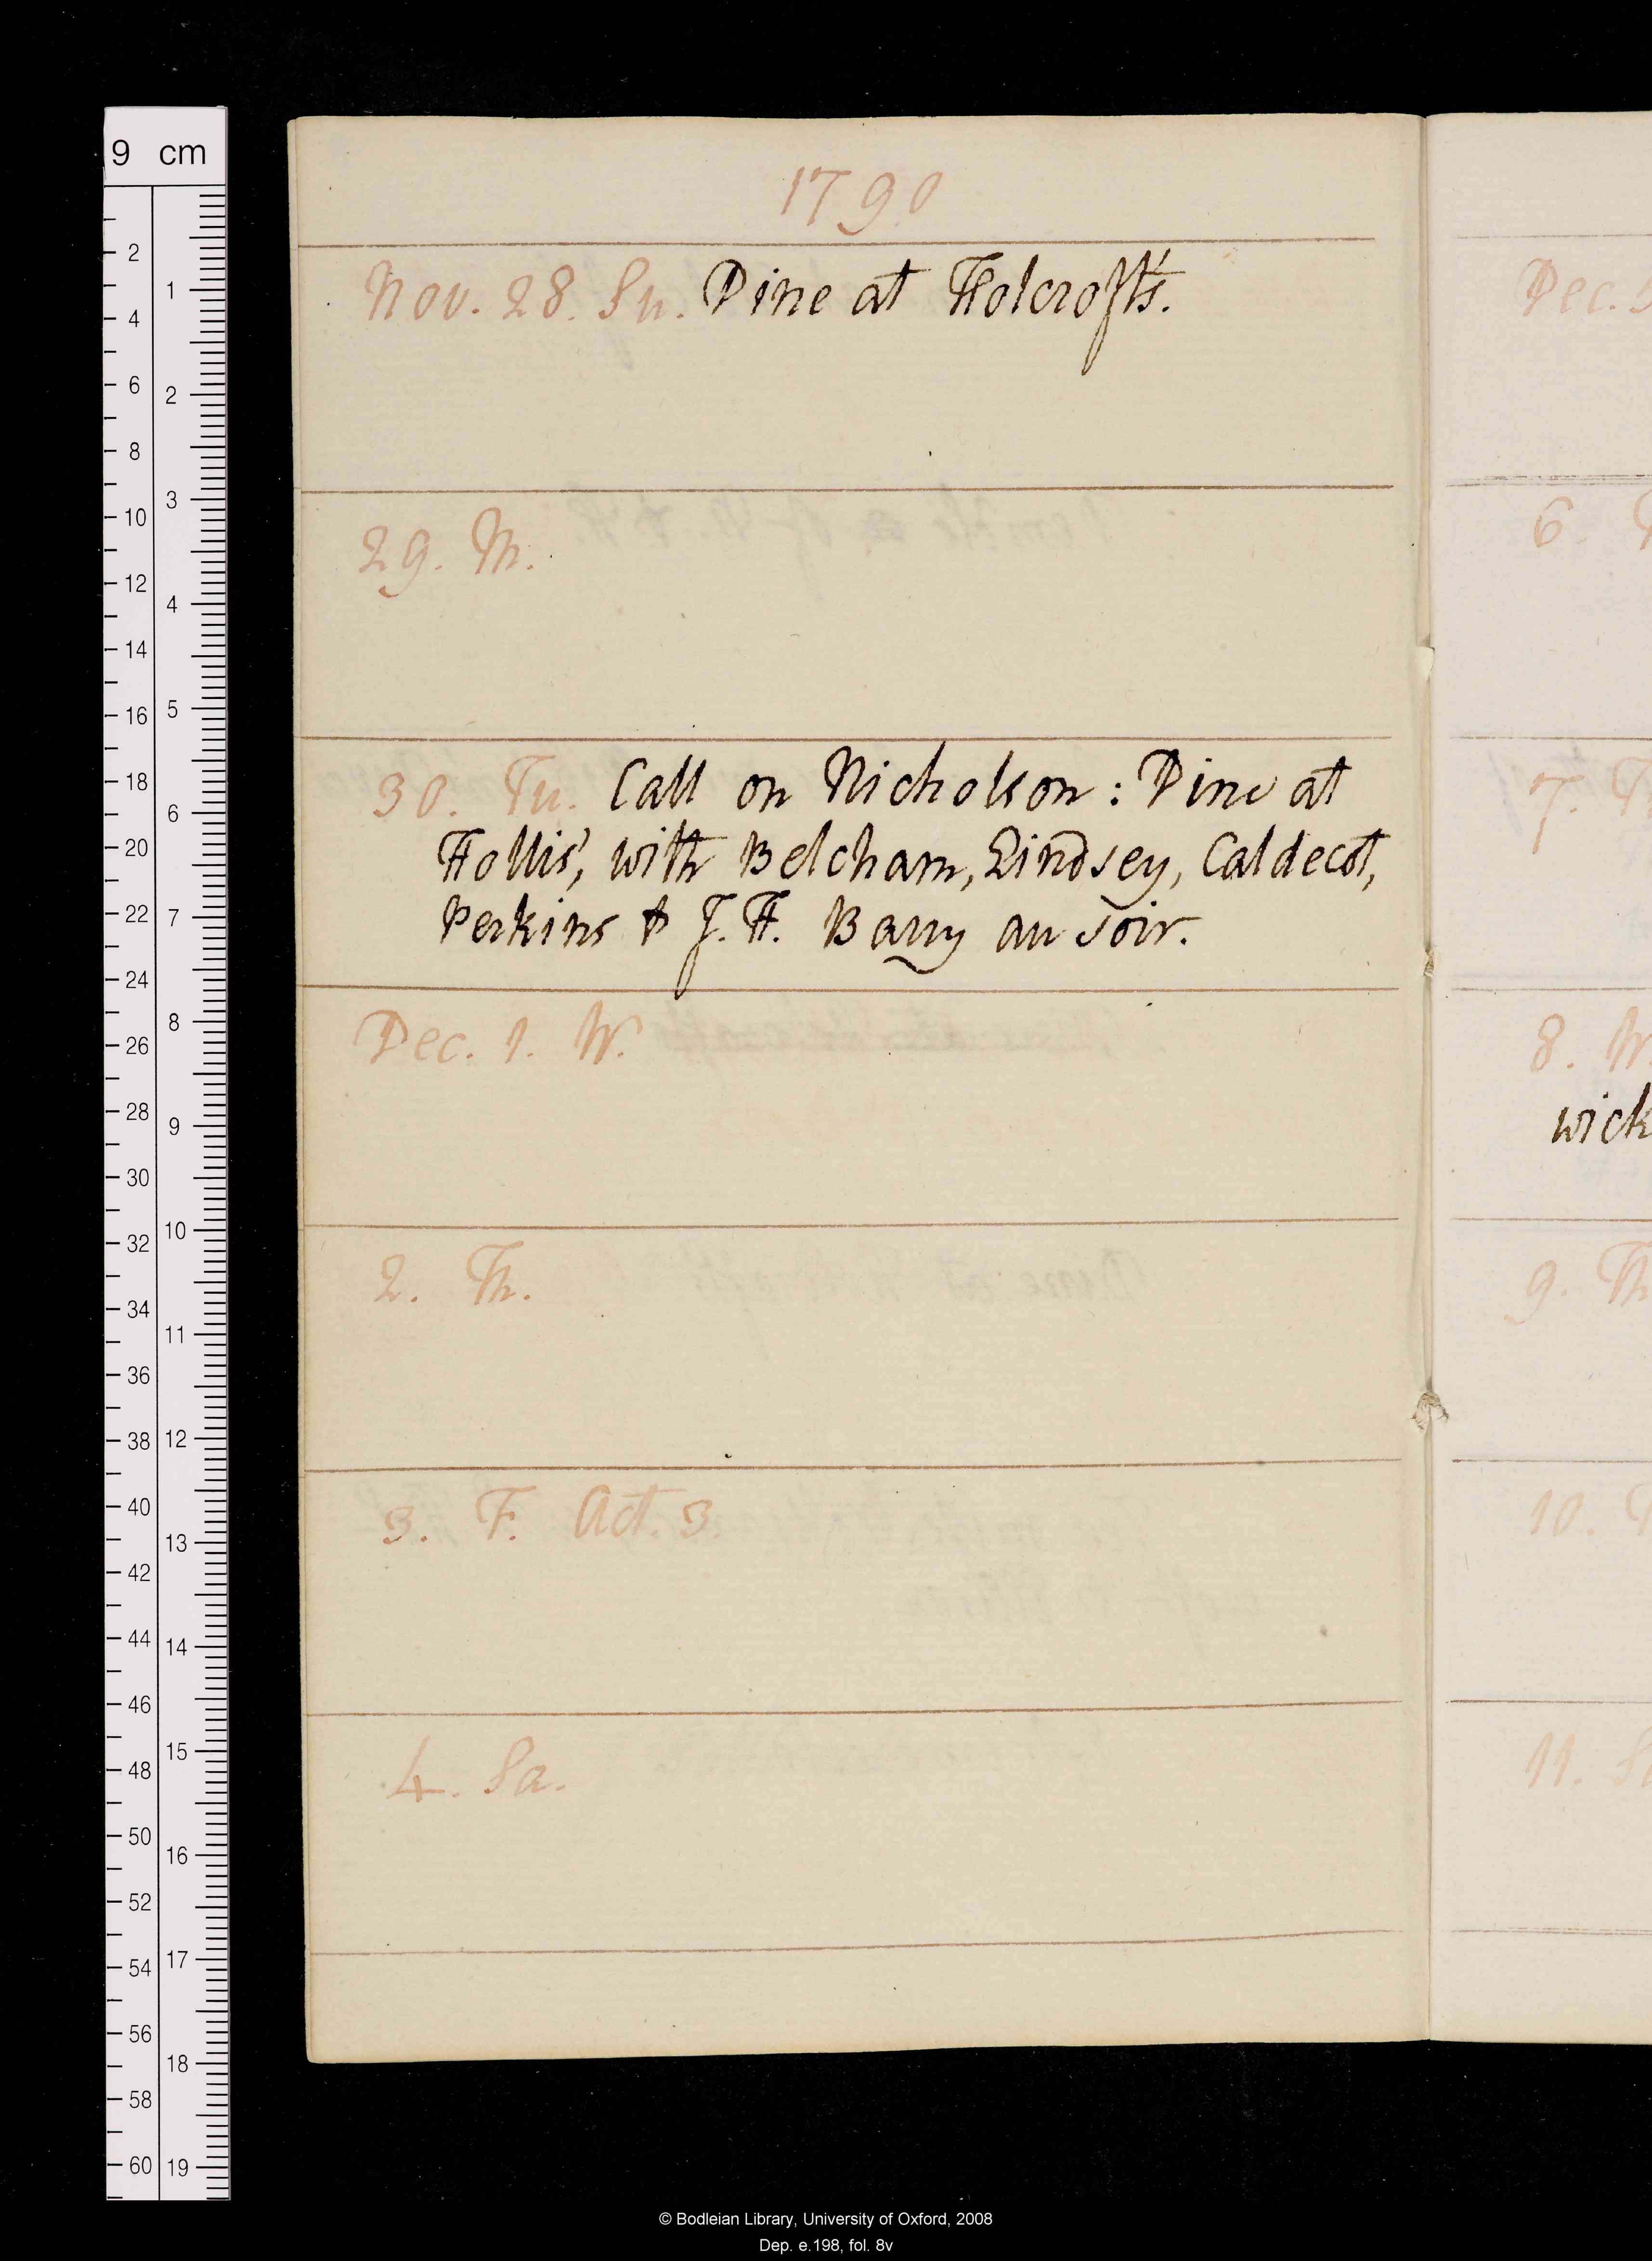 1790
Nov. 28. Su. Dine at Holcroft's.
29. M.
30. Tu. Call on Nicholson: Dine at
Hollis', with Belcham, Lindsey, Caldecot,
Perkins & J. H. Barry au soir.
Dec. 1. W.
2. Th.
3. F. Act. 3.
4. Sa.
Dec. 5
6.
7.
8. W.
wick
9. Th
10.
11. Sa
9 cm
2
4
6
8
10
12
14
16
18
20
22
24
26
28
30
32
34
36
38
40
42
44
46
48
50
52
54
56
58
60
1
2
3
4
5
6
7
8
9
10
11
12
13
14
15
16
17
18
19
© Bodleian Library, University of Oxford, 2008
Dep. e.198, fol. 8v